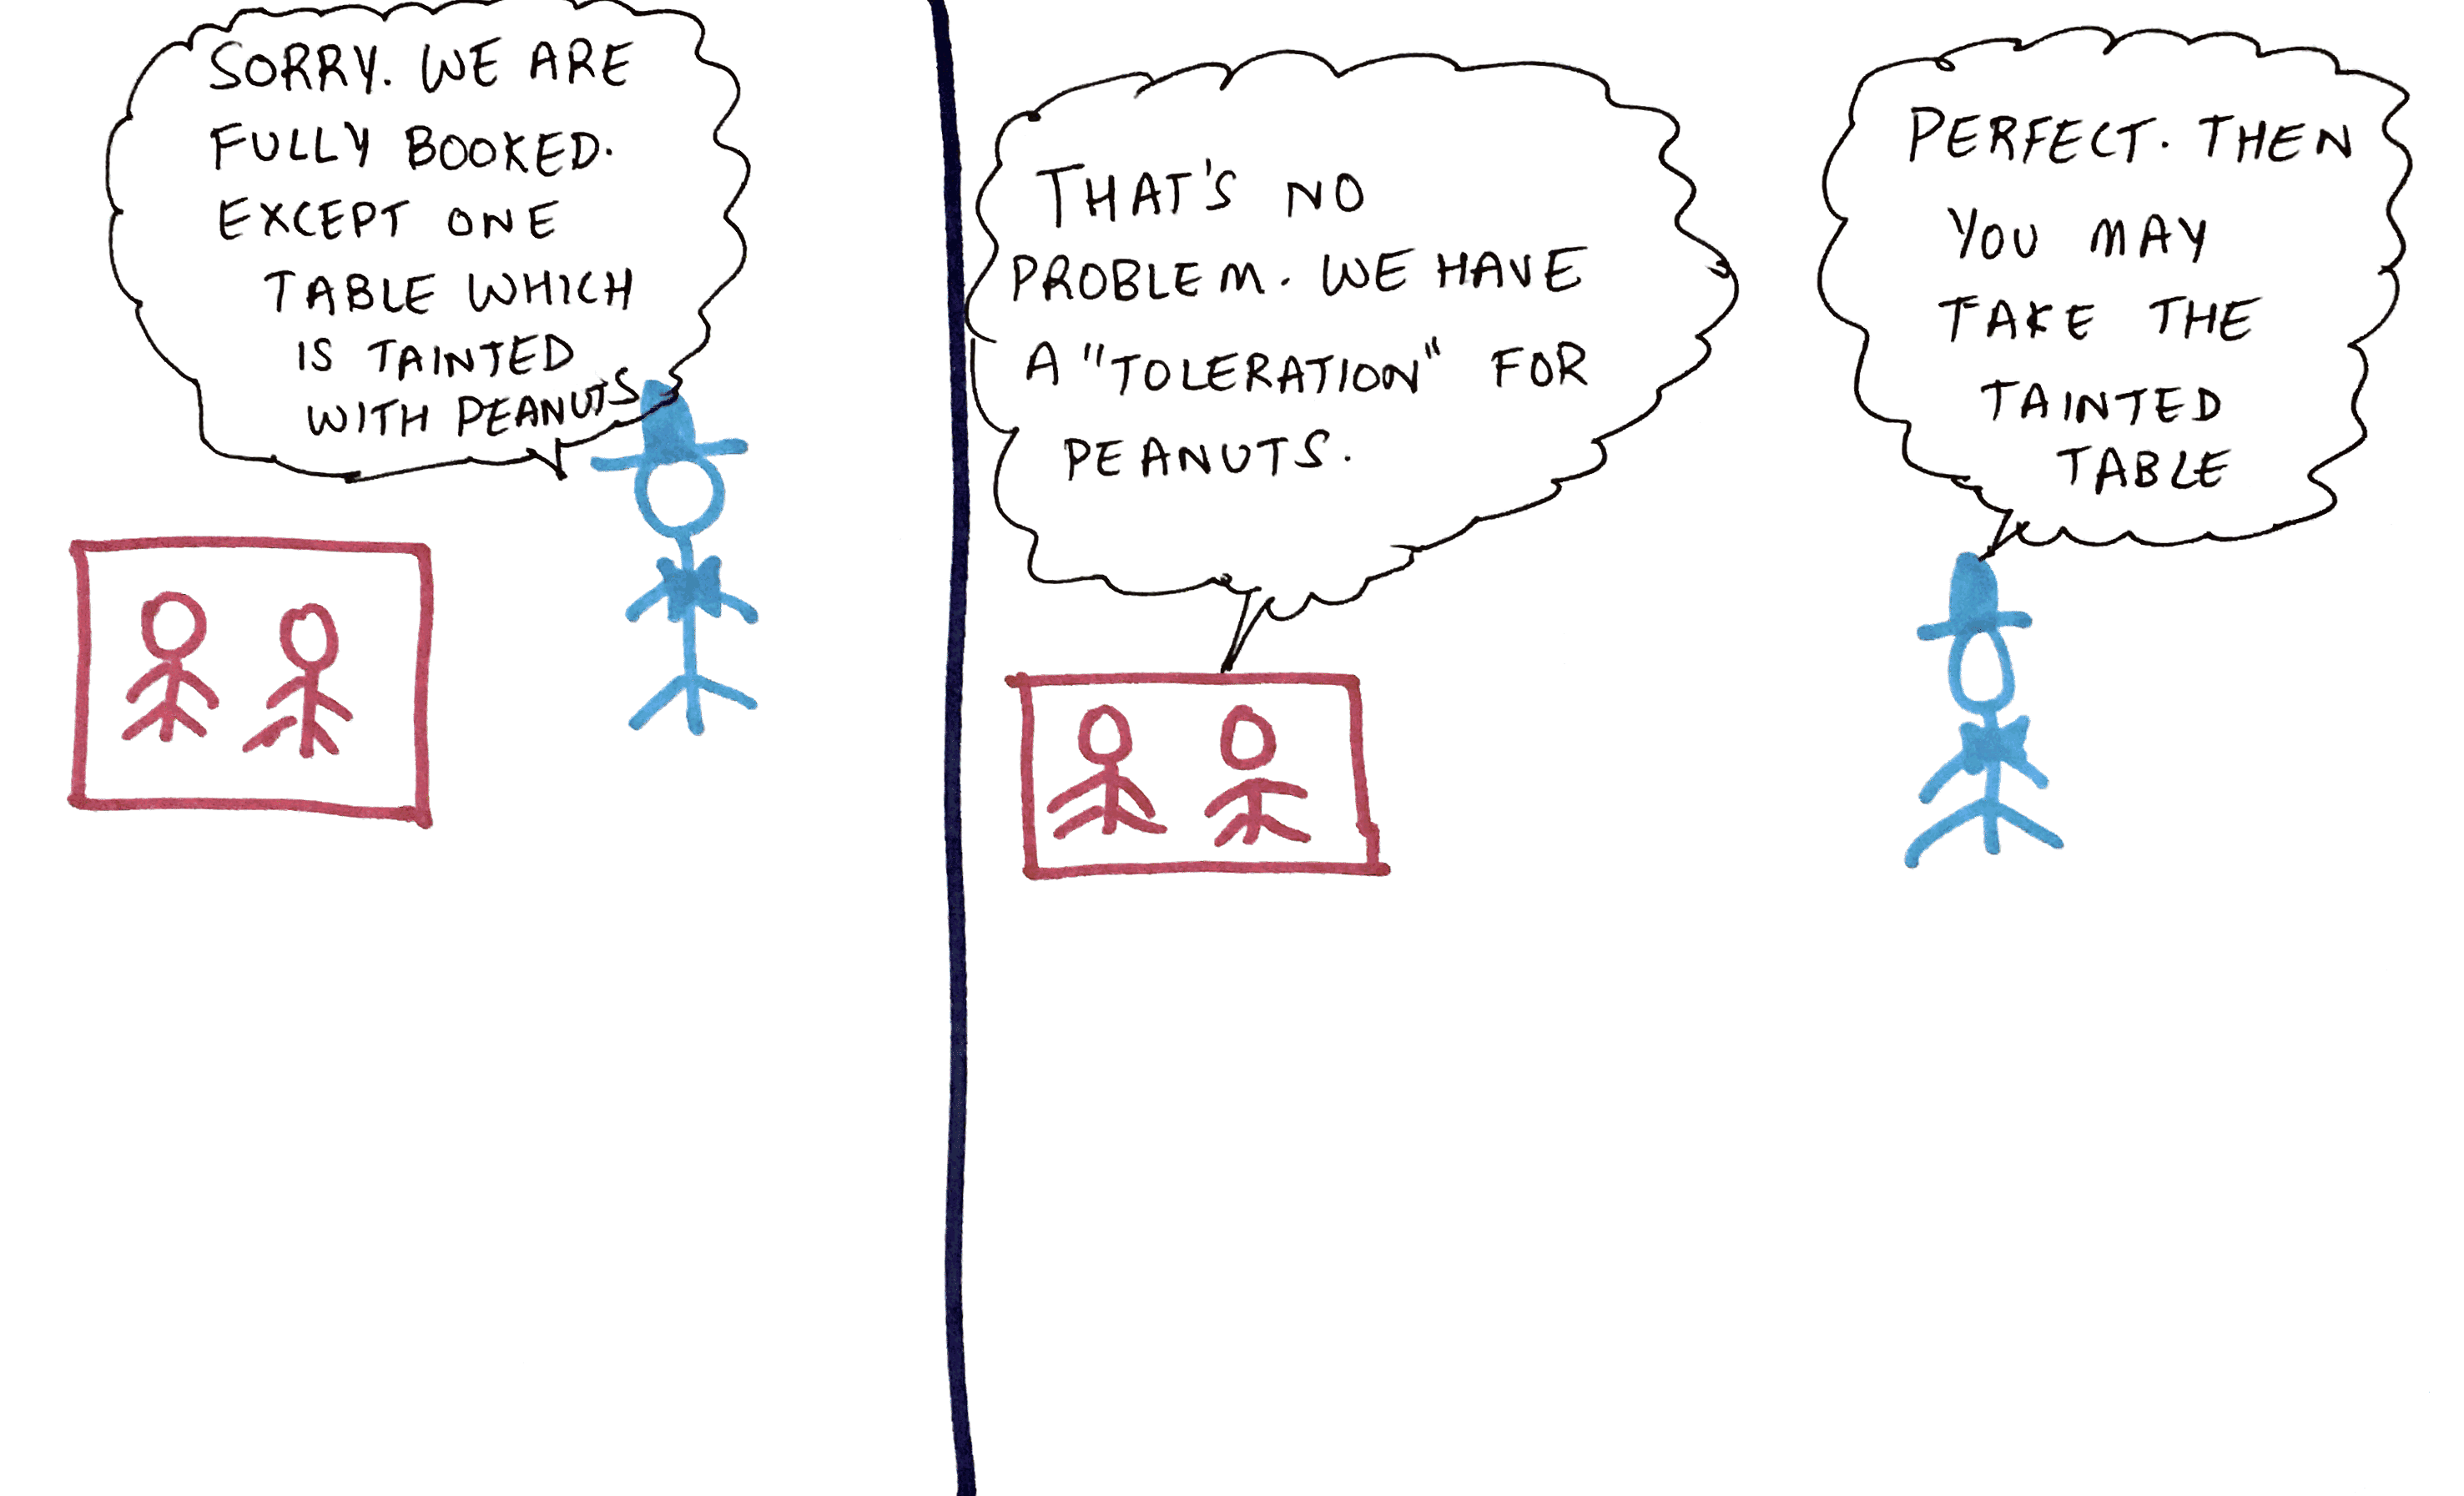 SORRY. WE ARE
FULLY BOOKED.
EXCEPT ONE
TABLE WHICH
IS TAINTED
WITH PEANUTS
THAT'S NO
PROBLEM. WE HAVE
A "TOLERATION" FOR
PEANUTS.
PERFECT. THEN
YOU MAY
TAKE THE
TAINTED
TABLE